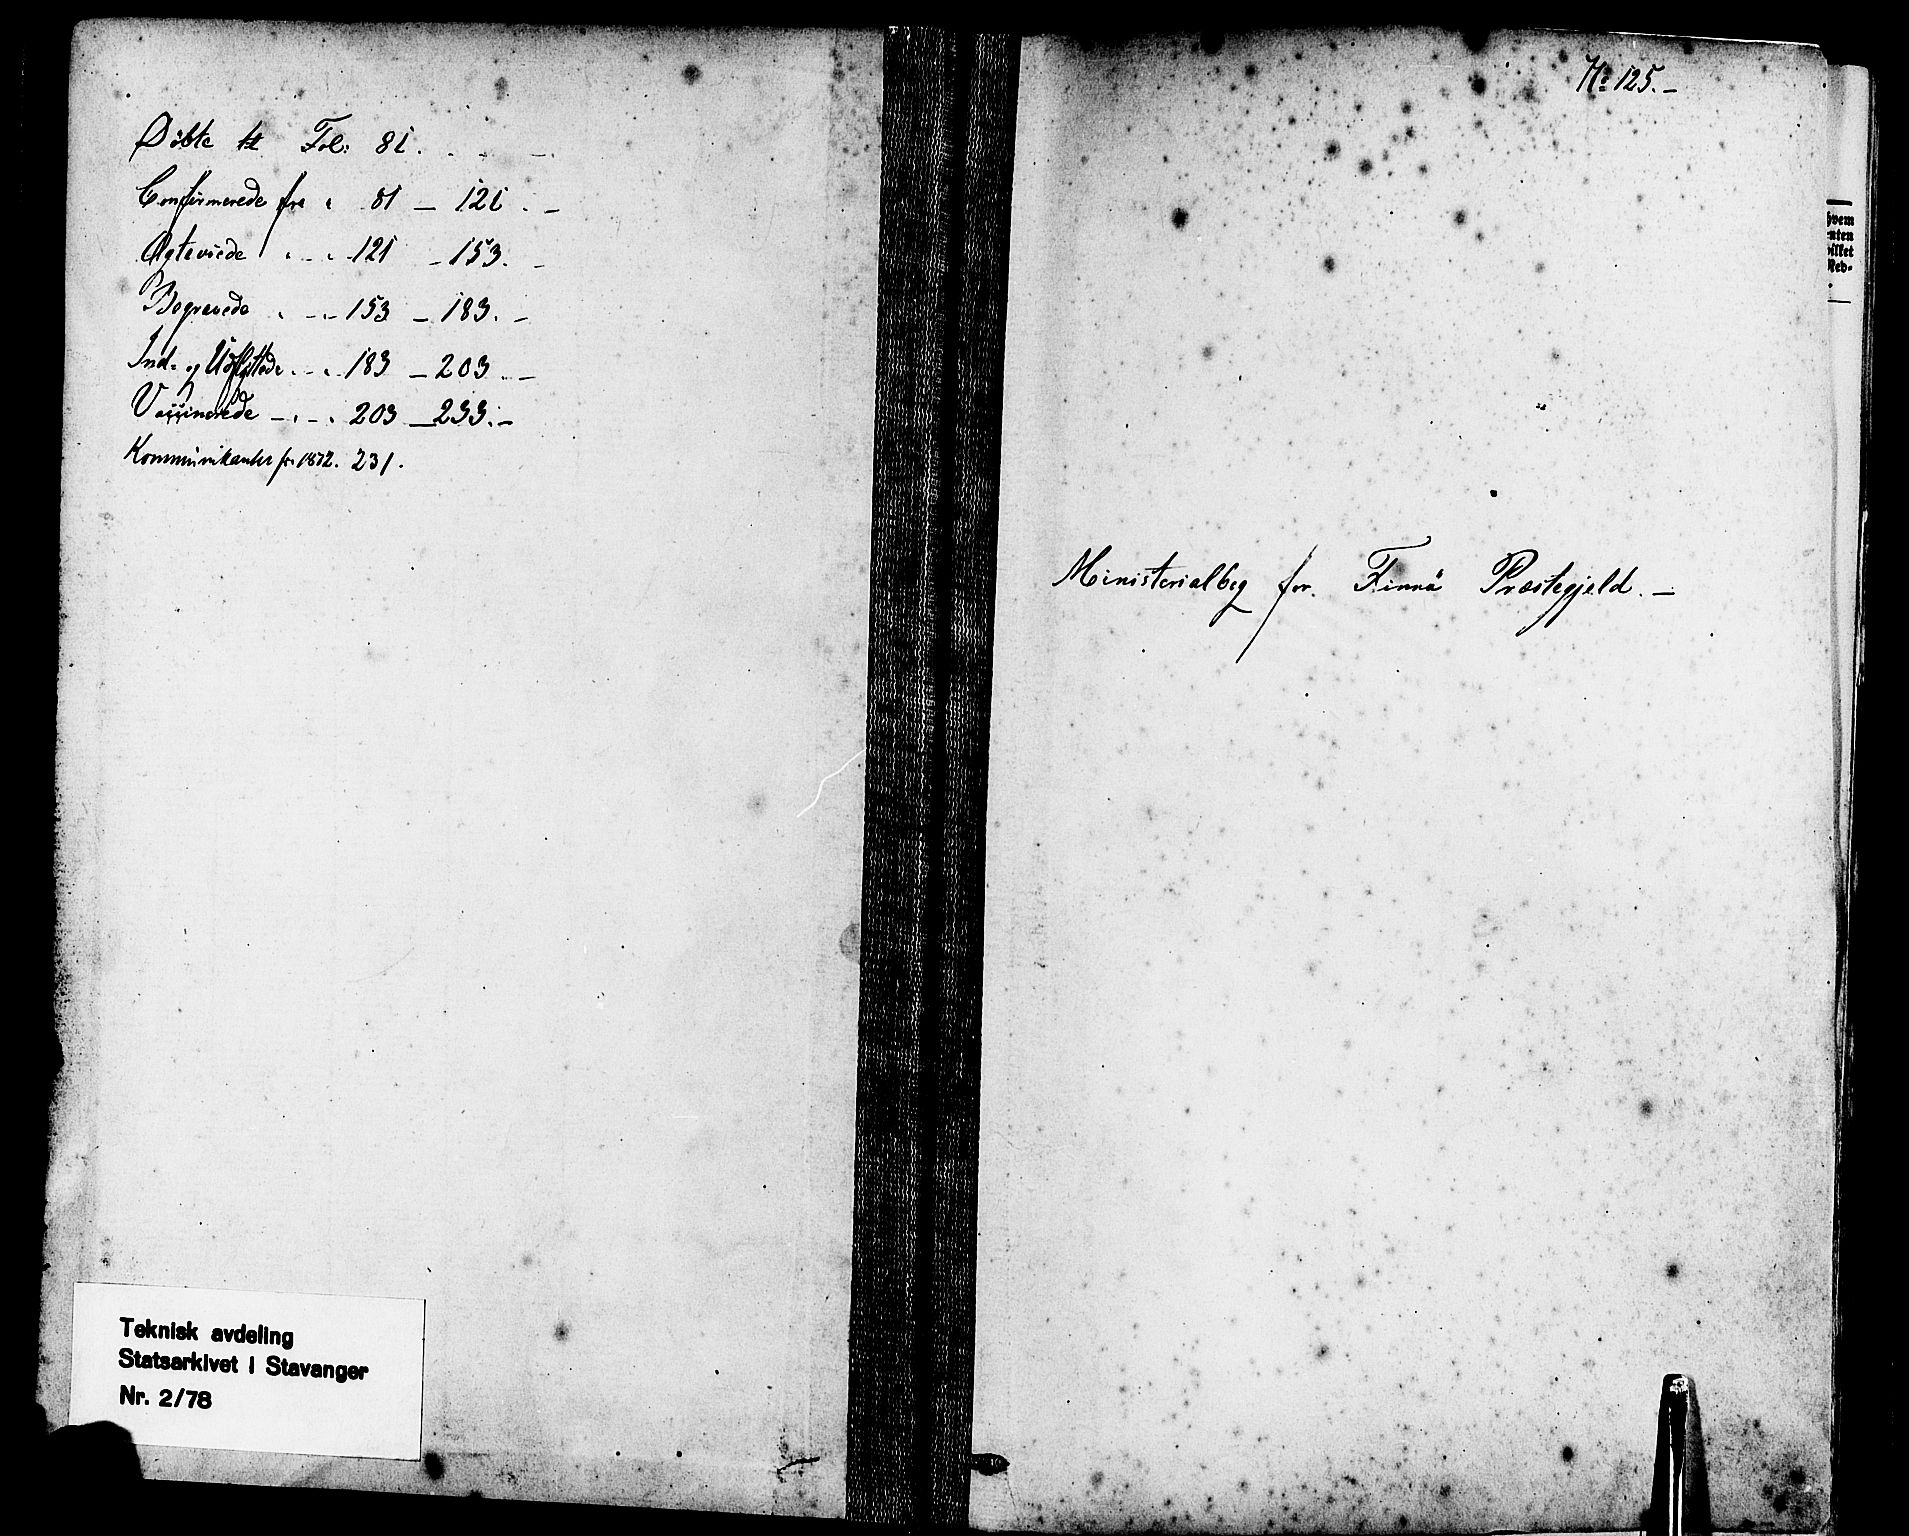 Døbte til Fol: 81. - - -
Confirmerede fra " 81 - 121. -
Ægteviede " - " - 121 - 153. -
Begravede " - " - 153 - 183. -
Ind- og Udflyttede. - " 183 - 203. -
Vaccinerede - " - " 203 - 233. -
Kommunikanter fr. 1872. 231.
Teknisk avdeling
Statsarkivet i Stavanger
Nr. 2/78
No 125. -
Ministerialbog for Finnö Præstegjeld. -
hvem
enten
vilket
Ned-